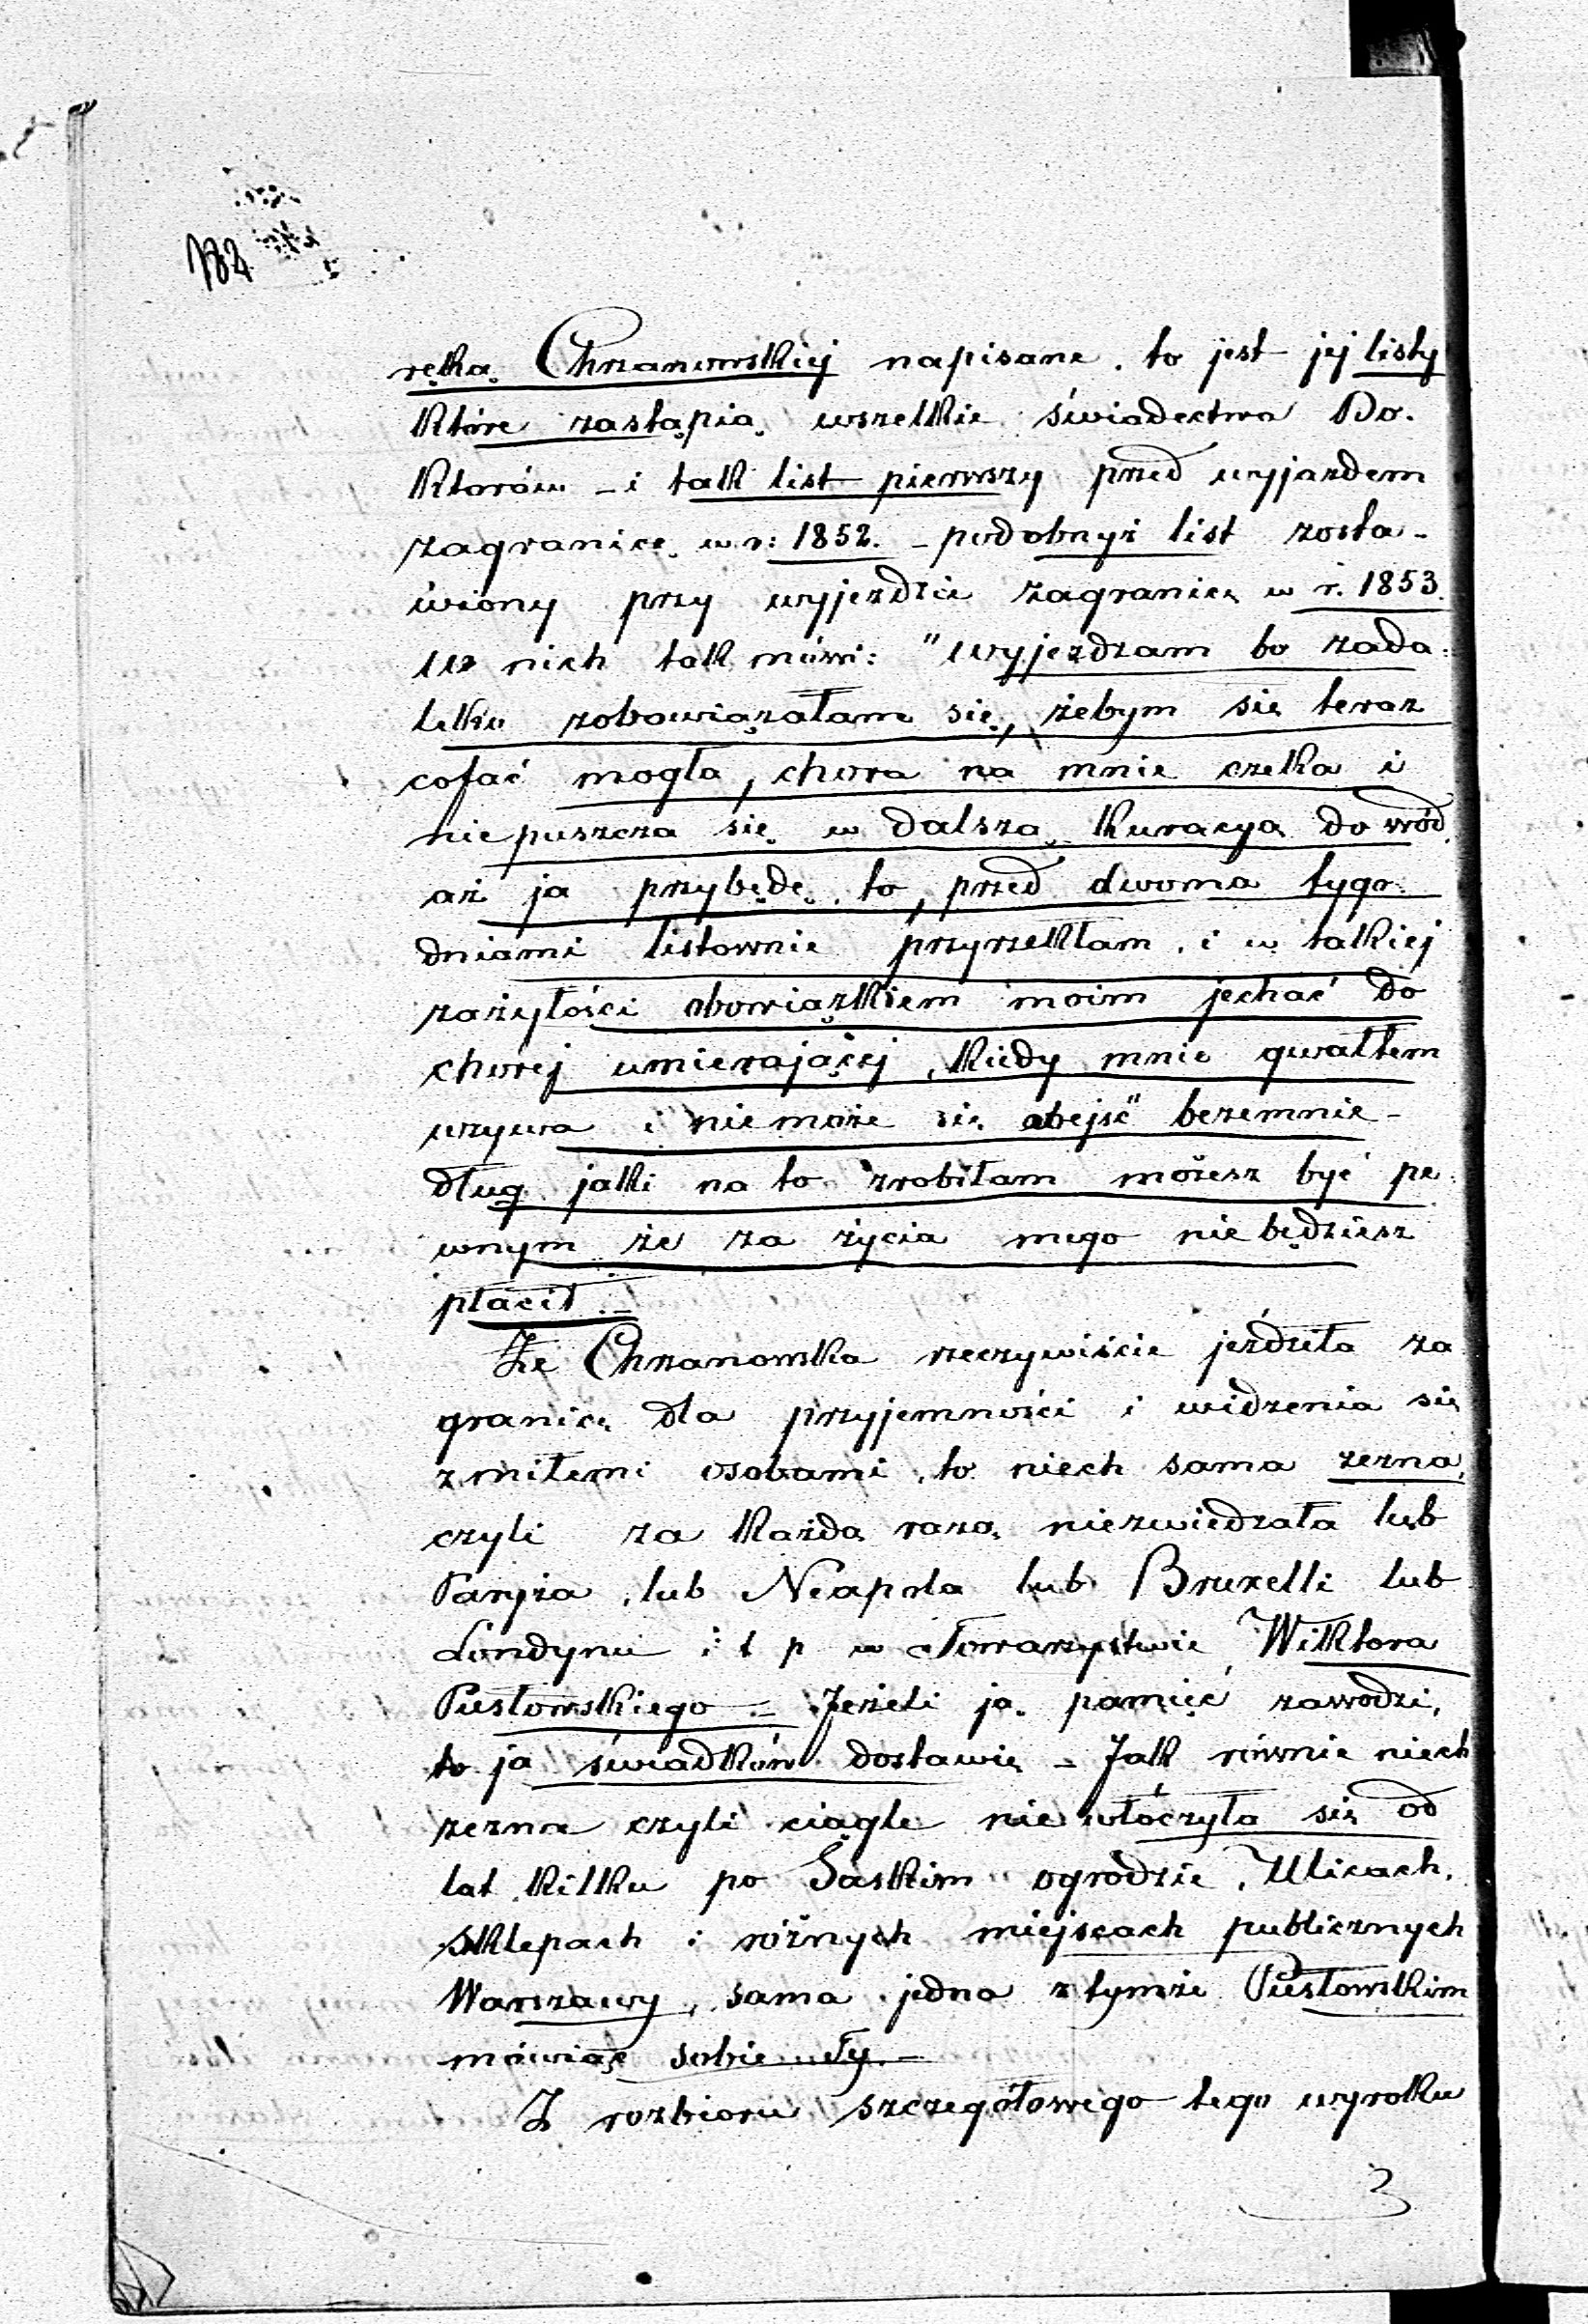 182
ręką Chrzanowskiej napisane, to jest jej listy
które zastąpią wszelkie świadectwa Do-
ktorów – i tak list pierwszy przed wyjazdem
zagranicę w r: 1852. – podobnyż list zosta-
wiony przy wyjeździe zagranicę w r. 1853.
w nich tak mówi: "wyjeżdżam bo zada-
leko zobowiązałam się, żebym się teraz
cofać mogła, chora na mnie czeka i
niepuszcza się w dalszą kuracyą do wód
aż ja przybędę, to, przed dwoma tygo-
dniami listownie przyrzekłam, i w takiej
zażyłości obowiązkiem moim jechać do
chorej umierającej, kiedy mnie gwałtem
wzywa i niemoże się obejść bezemnie –
dług jaki na to zrobiłam możesz być pe-
wnym że za życia mego nie będziesz
płacił. –
Że Chrzanowska rzeczywiście jeździła za
granicę dla przyjemności i widzenia się
z miłemi osobami, to niech sama zezna,
czyli za każdą razą niezwiedzała lub
Paryża, lub Neapola lub Bruxelli lub
Londynu i t p w Towarzystwie Wiktora
Pusłowskiego – Jeżeli ją pamięć zawodzi,
to ja świadków dostawię – Jak równie niech
zezna czyli ciągle nie włóczyła się od
lat kilku po Saskim ogrodzie, Ulicach,
sklepach i różnych miejscach publicznych
Warszawy, sama jedna z tymże Pusłowskim
mówiąc sobie Ty. –
Z rozbioru szczegółowego tego wyroku
3